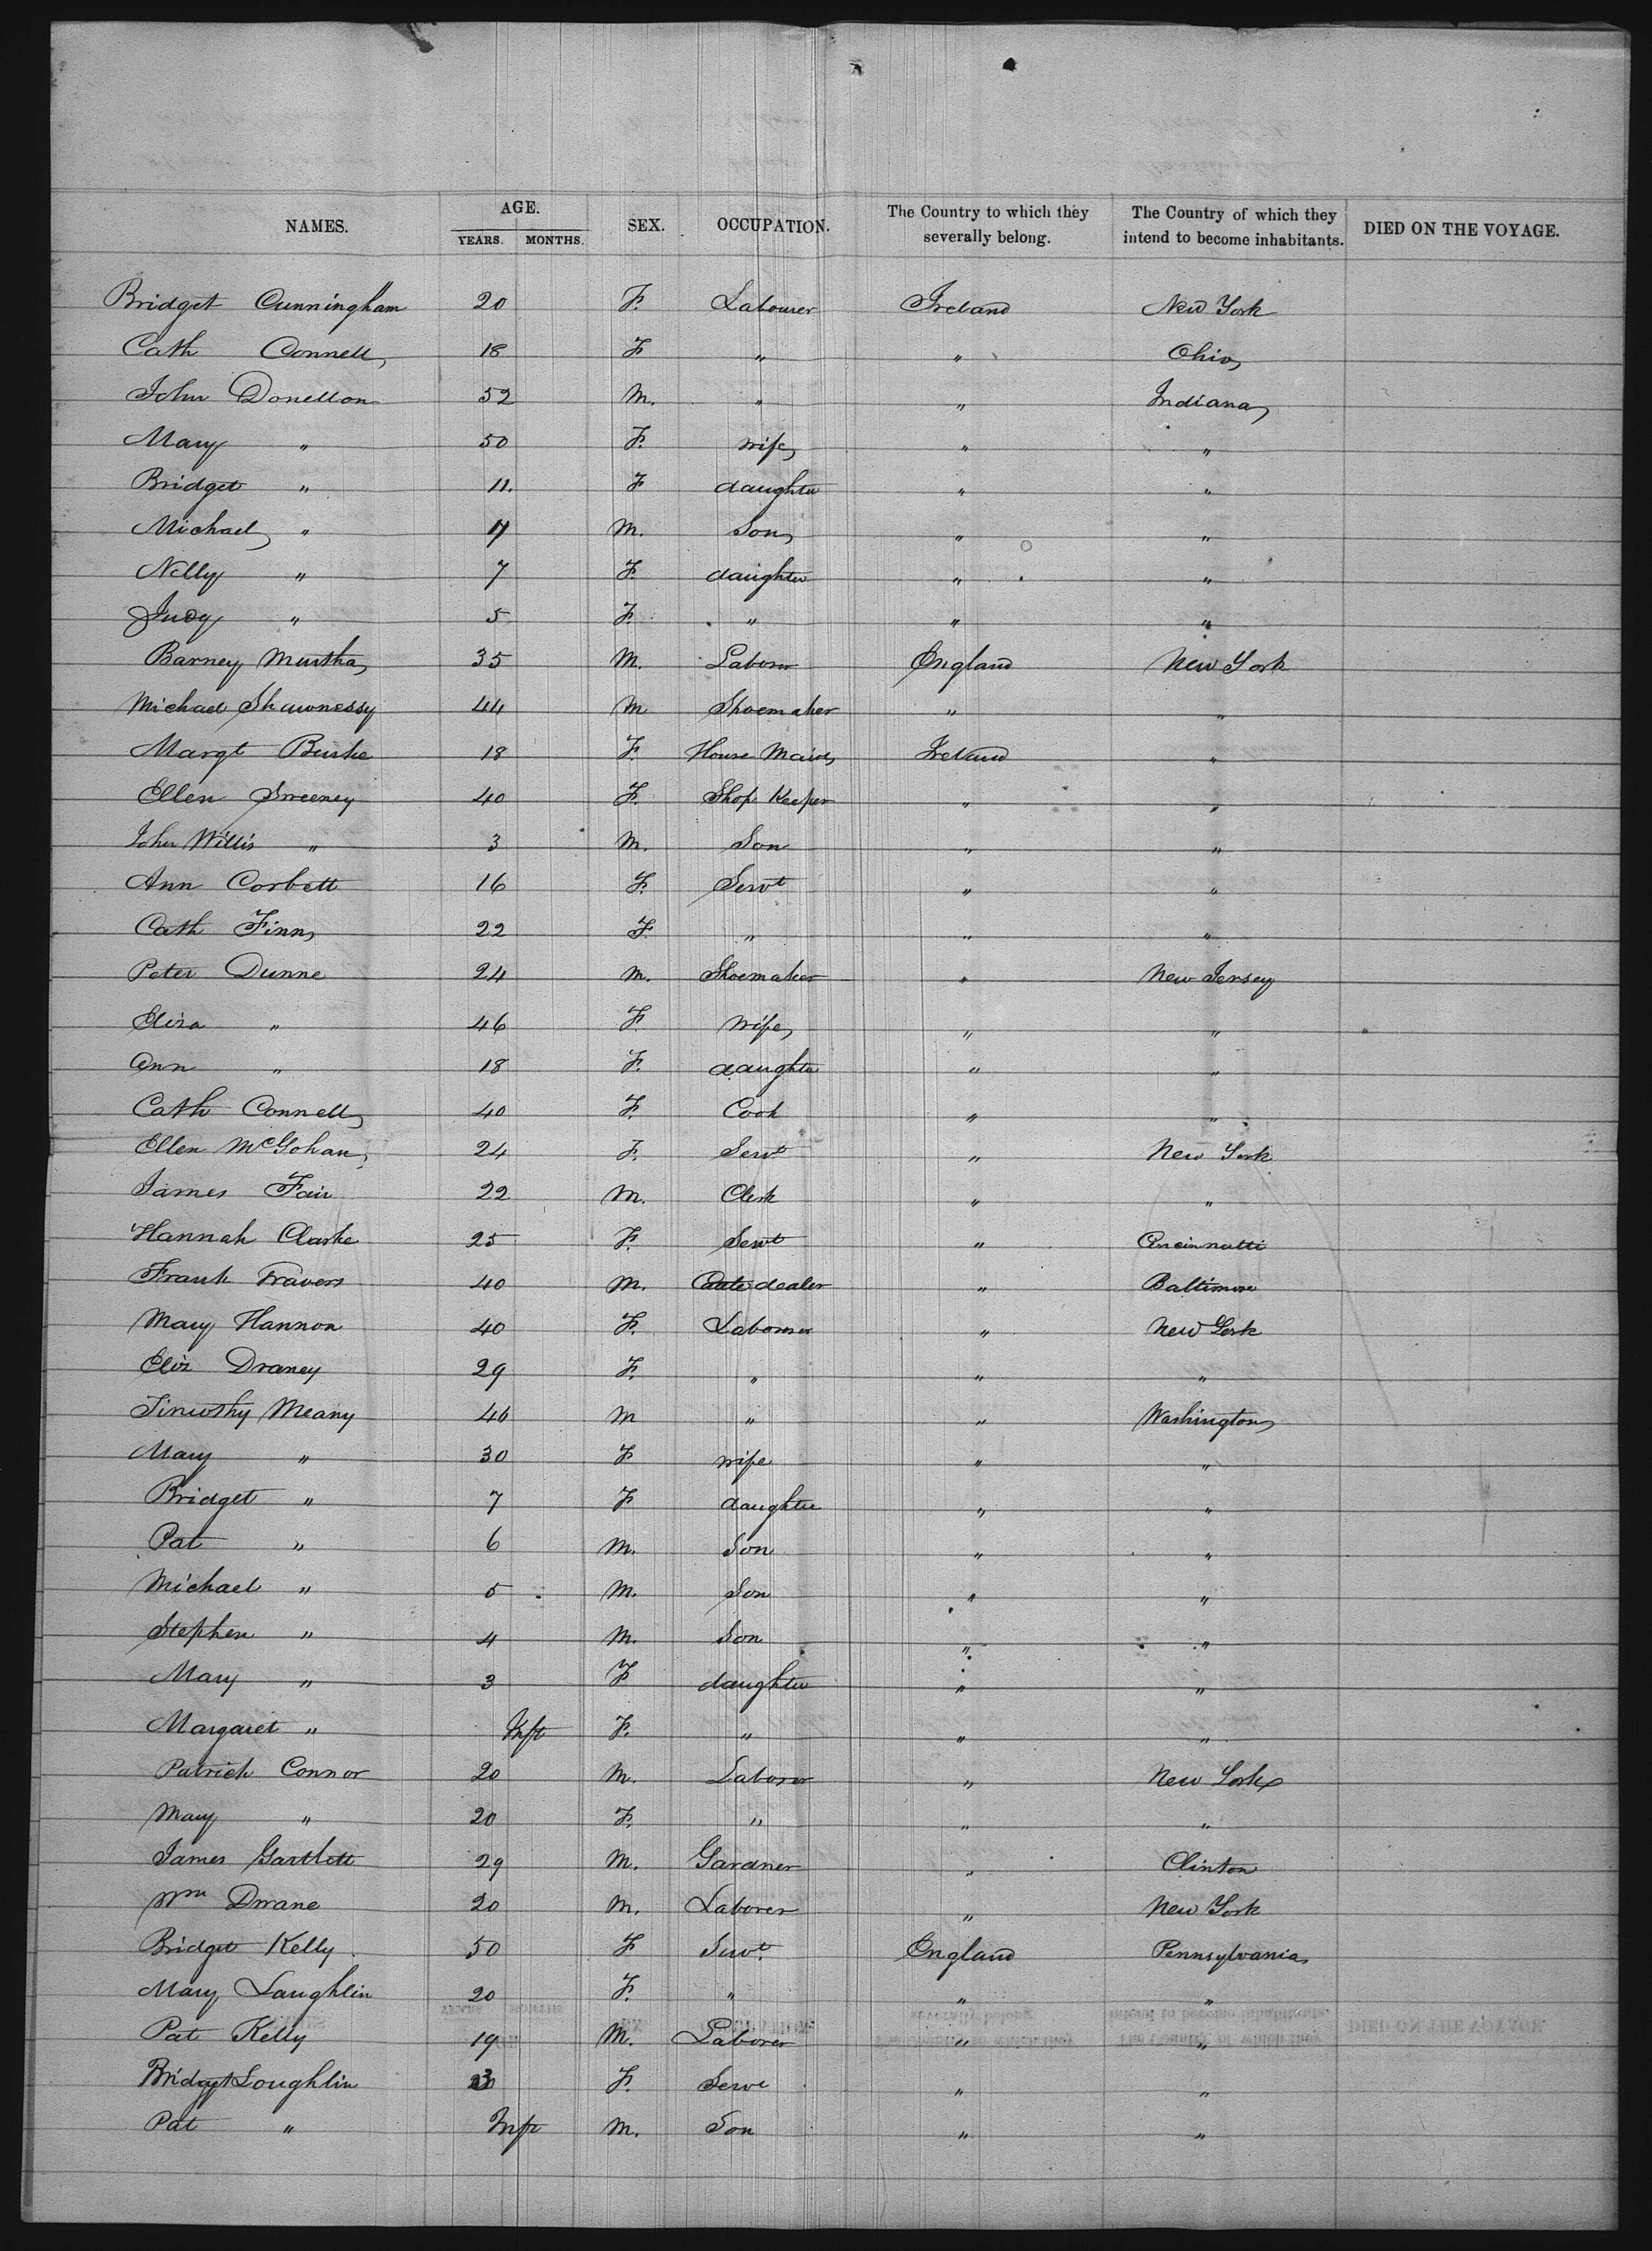 NAMES. AGE. YEARS. MONTHS. SEX. OCCUPATION. The Country to which they severally belong. The Country of which they intend to become inhabitants. DIED ON THE VOYAGE.
Bridget Cunningham 20 F. Labourer Ireland New York
Cath Connell 18 F " " Ohio
John Donellon 52 M. " " Indiana
Mary " 50 F. wife " "
Bridget " 11. F daughter " "
Michael " M. Son " "
Nelly " 7 F. daughter " "
Judy " 5 F. " " "
Barney Murtha 35 M. Laborer England New York
Michael Shawnessy 44 M Shoemaker " "
Margt Burke 18 F. House Maid Ireland "
Ellen Sweeney 40 F. Shop Keeper " "
John Willis " 3 M. Son " "
Ann Corbett 16 F. Servt " "
Cath Finn 22 F " " "
Peter Dunne 24 M. Shoemaker " New Jersey
Eliza " 46 F. Wife " "
Ann " 18 F. daughter " "
Cath Connell 40 F. Cook " "
Ellen McGohan 24 F. Servt " New York
James Fair 22 M. Clerk " "
Hannah Clarke 25 F. Servt " Cincinnatti
Frank Travers 40 M. dealer " Baltimore
Mary Hannon 40 F. Labourer " New York
Eliz Draney 29 F. " " "
Timothy Meany 46 M " " Washington
Mary " 30 F wife " "
Bridget " 7 F daughter " "
Pat " 6 M. Son " "
Michael " 5 M. Son " "
Stephen " 4 M. Son " "
Mary " 3 F daughter " "
Margaret " Inft F. " " "
Patrick Connor 20 M. Laborer " New York
Mary " 20 F. " " "
James Gartlett 29 M. Gardner " Clinton
Wm Drane 20 M. Laborer " New York
Bridget Kelly 50 F Servt England Pennsylvania
Mary Laughlin 20 F. " " "
Pat Kelly 19 M. Laborer " "
Bridget Loughlin F. Serve " "
Pat " Inft M. Son " "